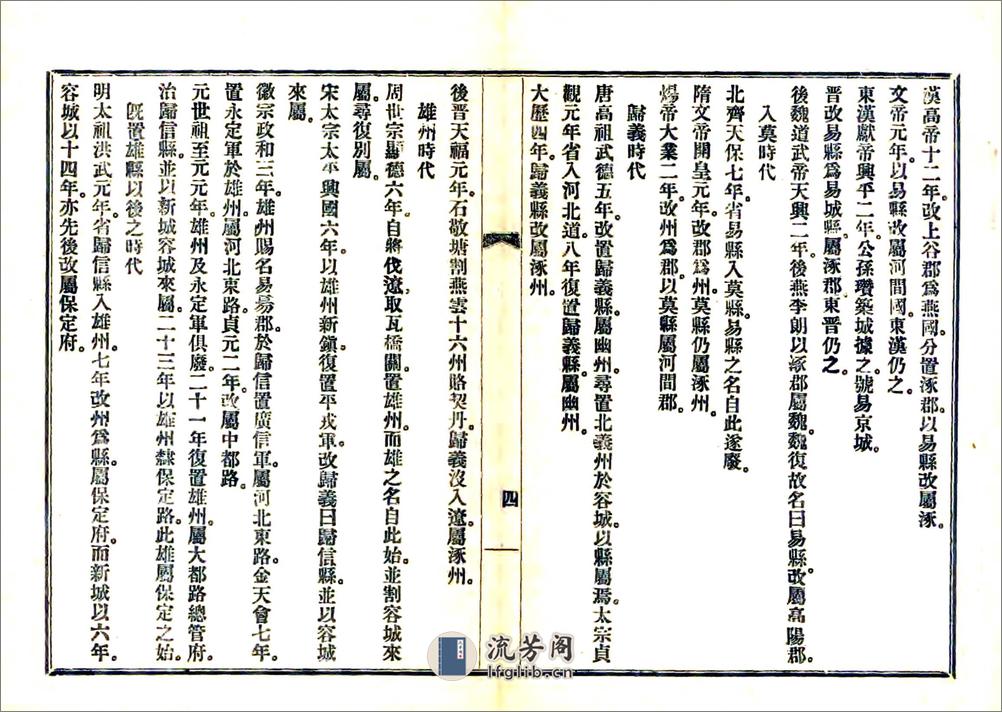 漢高帝十二年。改上谷郡爲燕國。分置涿郡。以易縣改屬涿。
文帝元年。以易縣改屬河間國。東漢仍之。
東漢獻帝興平二年。公孫瓚築城據之。號易京城。
晉改易縣爲易城縣。屬涿郡東晉仍之。
後魏道武帝天興二年。後燕李朗以涿郡屬魏。魏復故名曰易縣。改屬高陽郡。
入莫時代
北齊天保七年。省易縣入莫縣。易縣之名自此遂廢。
隋文帝開皇元年。改郡爲州。莫縣仍屬涿州。
煬帝大業二年。改州爲郡。以莫縣屬河間郡。
歸義時代
唐高祖武德五年。改置歸義縣。屬幽州。尋置北義州於容城。以縣屬焉。太宗貞
觀元年省入河北道。八年復置歸義縣。屬幽州。
大歷四年。歸義縣改屬涿州。
四
後晉天福元年。石敬塘割燕雲十六州賂契丹。歸義沒入遼。屬涿州。
雄州時代
周世宗顯德六年。自將伐遼。取瓦橋關。置雄州。而雄之名自此始。並割容城來
屬。尋復別屬。
宋太宗太平興國六年。以雄州新鎮復置平戎軍。改歸義曰歸信縣。並以容城
來屬。
徽宗政和三年。雄州賜名易易郡。於歸信置廣信軍。屬河北東路。金天會七年。
置永定軍於雄州。屬河北東路。貞元二年。改屬中都路。
元世祖至元元年。雄州及永定軍俱廢。二十一年復置雄州。屬大都路總管府。
治歸信縣。並以新城容城來屬。二十三年以雄州隸保定路。此雄屬保定之始。
旣置雄縣以後之時代
明太祖洪武元年。省歸信縣入雄州。七年改州爲縣。屬保定府。而新城以六年。
容城以十四年。亦先後改屬保定府。
流芳阁
lfglib.cn